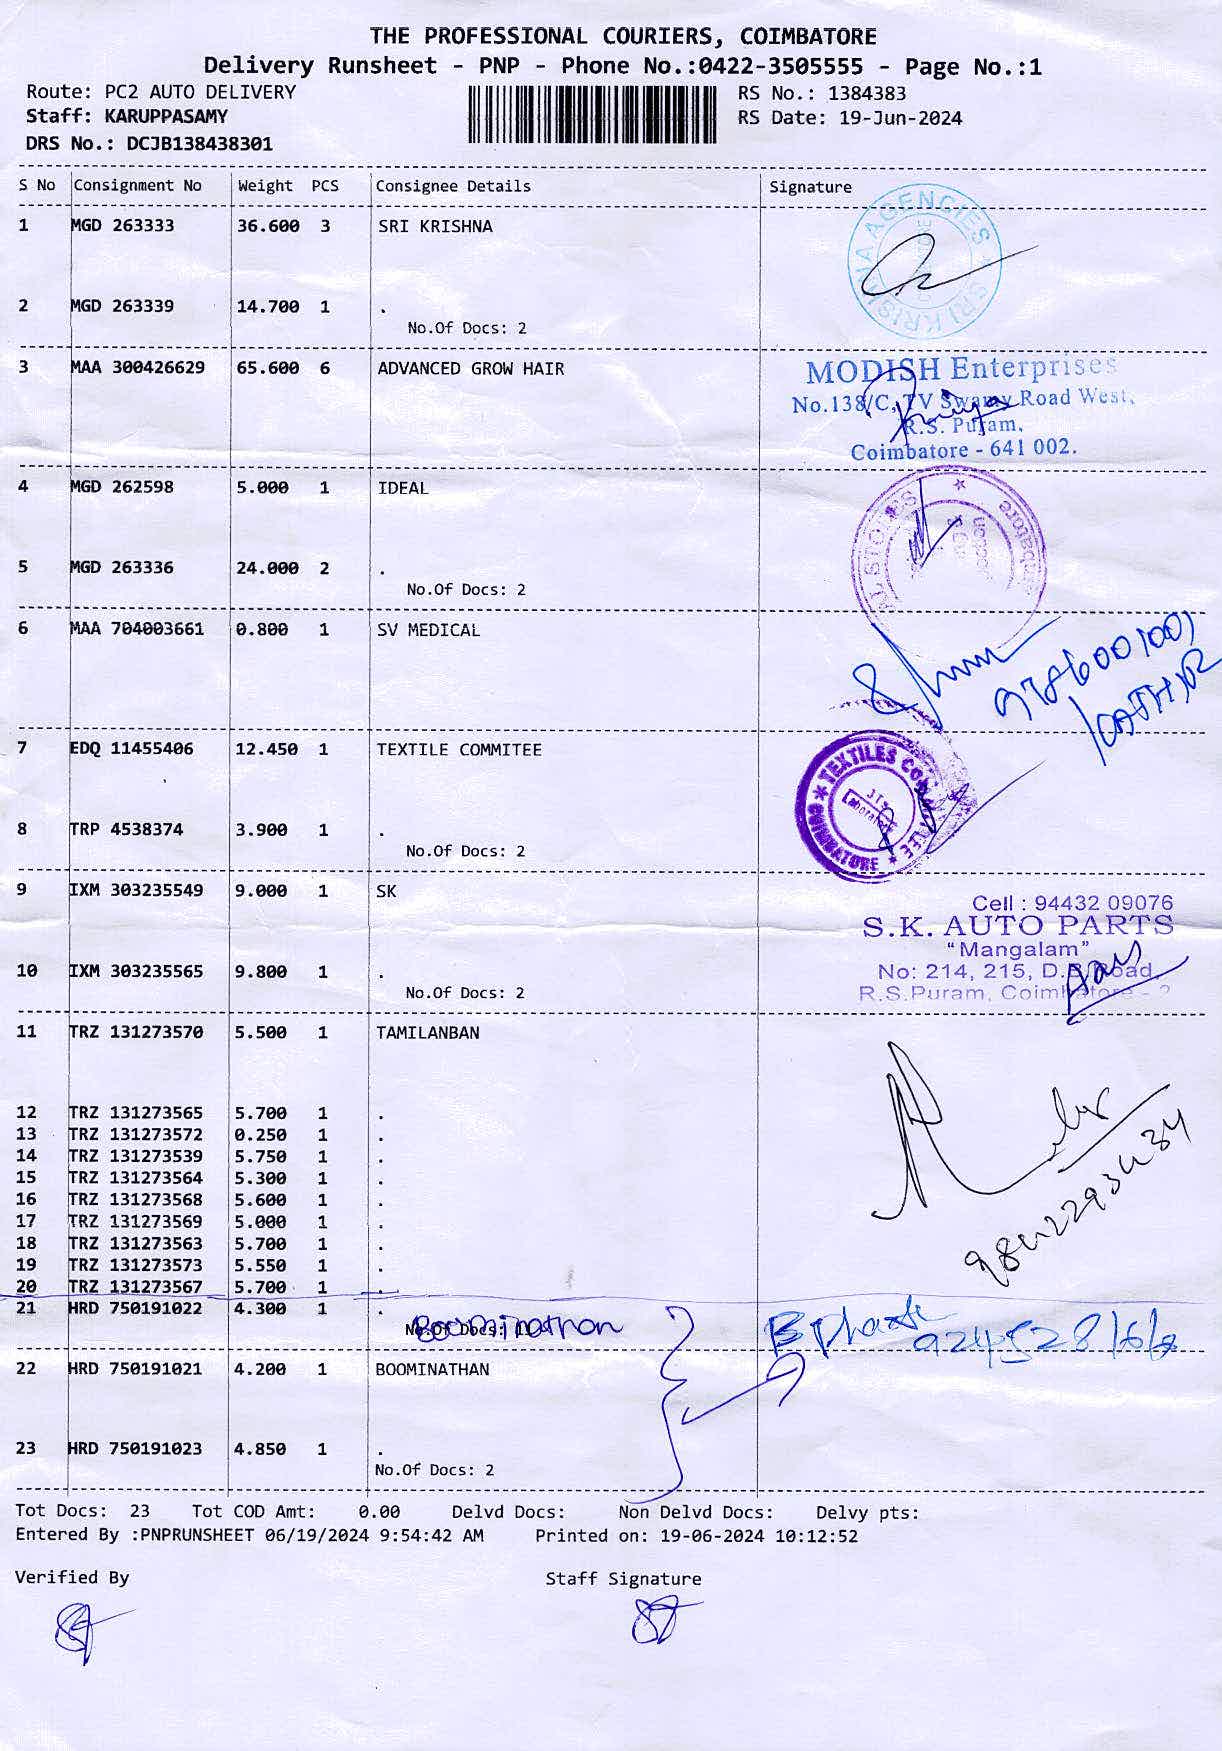 THE PROFESSIONAL COURIERS, COIMBATORE
Delivery Runsheet - PNP - Phone No.:0422-3505555 - Page No.:1
Route: PC2 AUTO DELIVERY
RS No.: 1384383
Staff: KARUPPASAMY
RS Date: 19-Jun-2024
DRS No.: DCJB138438301
S No Consignment No Weight PCS Consignee Details Signature
1 MGD 263333 36.600 3 SRI KRISHNA
SRI KRISHNA AGENCIES
2 MGD 263339 14.700 1 .
No.Of Docs: 2
3 MAA 300426629 65.600 6 ADVANCED GROW HAIR
MODISH Enterprises
No.138/C, TV Swamy Road West,
R.S. Puram,
Coimbatore - 641 002.
4 MGD 262598 5.000 1 IDEAL
5 MGD 263336 24.000 2 .
No.Of Docs: 2
6 MAA 704003661 0.800 1 SV MEDICAL
KATHIR
7 EDQ 11455406 12.450 1 TEXTILE COMMITEE
TEXTILES COMMITTEE
COIMBATORE
8 TRP 4538374 3.900 1 .
No.Of Docs: 2
9 IXM 303235549 9.000 1 SK
Cell : 94432 09076
S.K. AUTO PARTS
"Mangalam"
No: 214, 215, D.B. Road,
R.S.Puram, Coimbatore - 2
10 IXM 303235565 9.800 1 .
No.Of Docs: 2
11 TRZ 131273570 5.500 1 TAMILANBAN
12 TRZ 131273565 5.700 1 .
13 TRZ 131273572 0.250 1 .
14 TRZ 131273539 5.750 1 .
15 TRZ 131273564 5.300 1 .
16 TRZ 131273568 5.600 1 .
17 TRZ 131273569 5.000 1 .
18 TRZ 131273563 5.700 1 .
19 TRZ 131273573 5.550 1 .
20 TRZ 131273567 5.700 1 .
21 HRD 750191022 4.300 1 .
No.Of Docs: 11
Boominathan
22 HRD 750191021 4.200 1 BOOMINATHAN
23 HRD 750191023 4.850 1 .
No.Of Docs: 2
Tot Docs: 23 Tot COD Amt: 0.00 Delvd Docs: Non Delvd Docs: Delvy pts:
Entered By :PNPRUNSHEET 06/19/2024 9:54:42 AM Printed on: 19-06-2024 10:12:52
Verified By Staff Signature